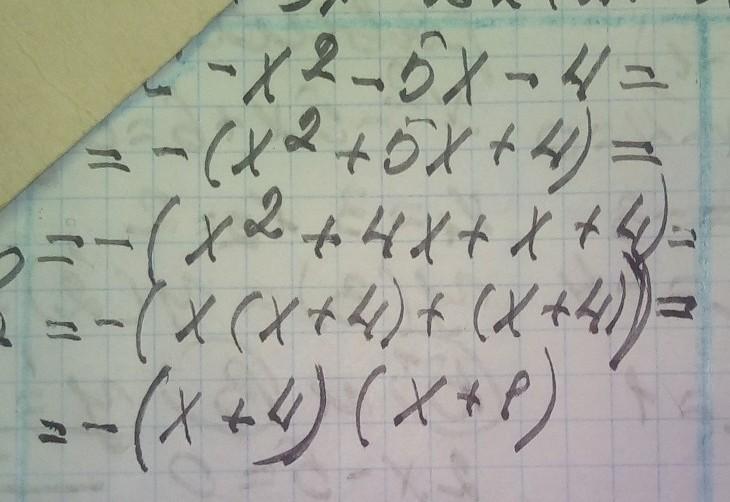 - x² - 5x - 4 =
= - (x² + 5x + 4) =
= - (x² + 4x + x + 4) =
= - (x (x + 4) + (x + 4)) =
= - (x + 4) (x + 1)